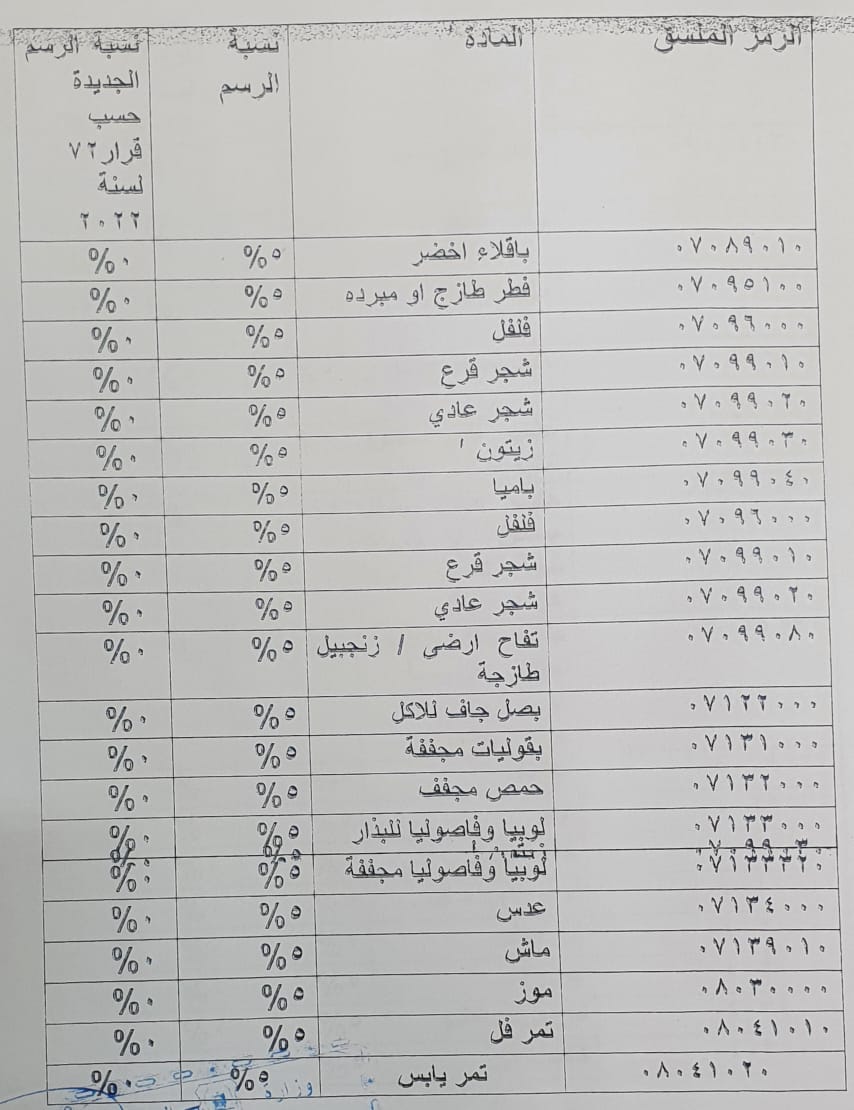 الرمز المنسق المادة نسبة الرسم نسبة الرسم الجديدة حسب قرار ٧٢ لسنة ٢٠٢٢
٠٧٠٨٩٠١٠ باقلاء اخضر ٥% ٠%
٠٧٠٩٥١٠٠ فطر طازج او مبرده ٥% ٠%
٠٧٠٩٦٠٠٠ فلفل ٥% ٠%
٠٧٠٩٩٠١٠ شجر قرع ٥% ٠%
٠٧٠٩٩٠٢٠ شجر عادي ٥% ٠%
٠٧٠٩٩٠٣٠ زيتون ٥% ٠%
٠٧٠٩٩٠٤٠ باميا ٥% ٠%
٠٧٠٩٦٠٠٠ فلفل ٥% ٠%
٠٧٠٩٩٠١٠ شجر قرع ٥% ٠%
٠٧٠٩٩٠٢٠ شجر عادي ٥% ٠%
٠٧٠٩٩٠٨٠ تفاح ارضي / زنجبيل ٥% ٠%
طازجة
٠٧١٢٢٠٠٠ بصل جاف للاكل ٥% ٠%
٠٧١٣١٠٠٠ بقوليات مجففة ٥% ٠%
٠٧١٣٢٠٠٠ حمص مجفف ٥% ٠%
٠٧١٣٣٠٠٠ لوبيا وفاصوليا للبذار ٥% ٠%
لوبيا وفاصوليا مجففة ٥% ٠%
٠٧١٣٤٠٠٠ عدس ٥% ٠%
٠٧١٣٩٠١٠ ماش ٥% ٠%
٠٨٠٣٠٠٠٠ موز ٥% ٠%
٠٨٠٤١٠١٠ تمر فل ٥% ٠%
٠٨٠٤١٠٢٠ تمر يابس ٥% ٠%
وزارة